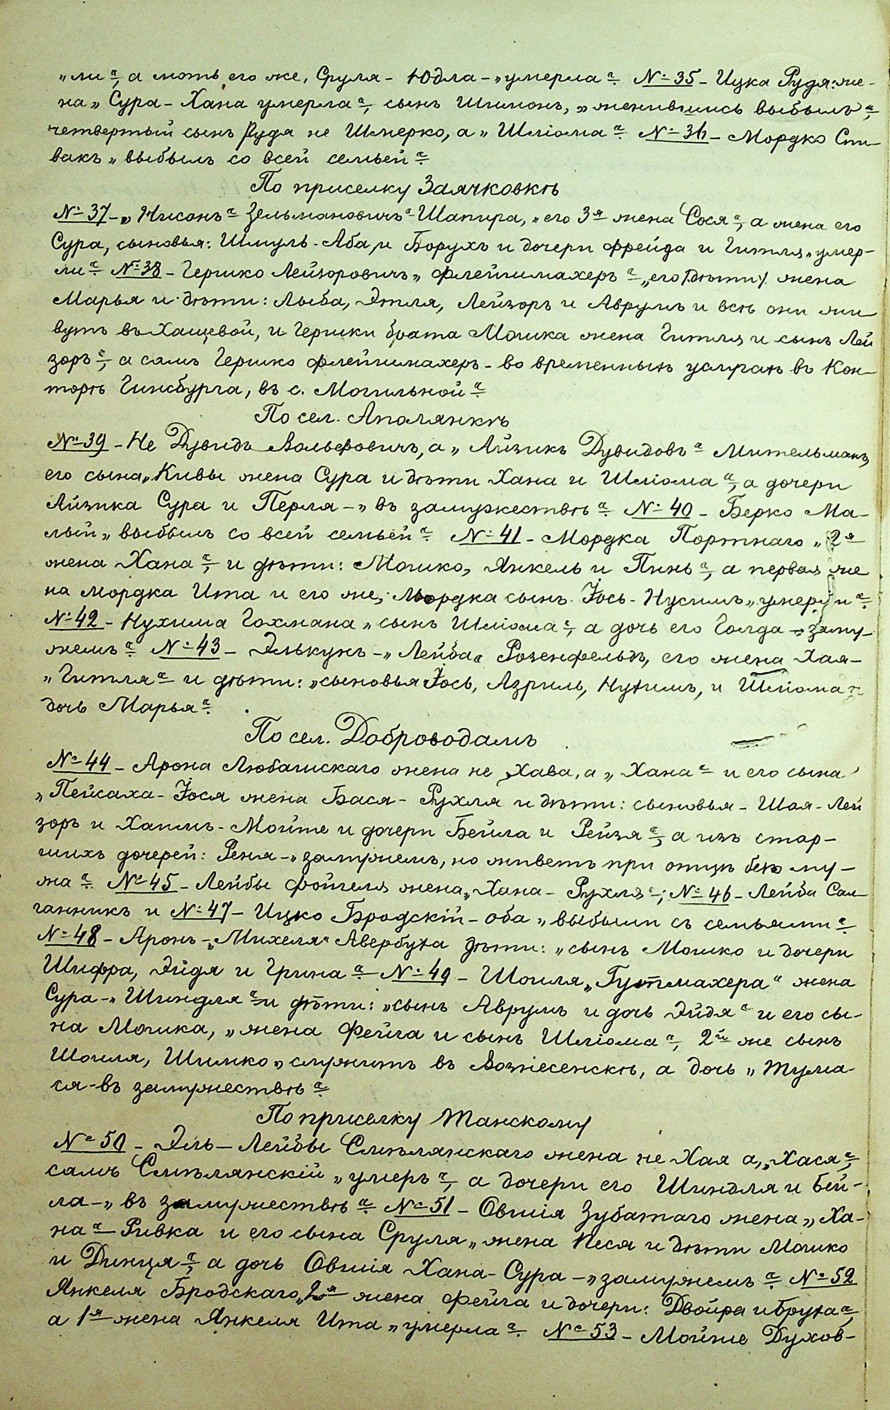 „ли“, а мать его же, Сруля - Юдля - „умерла“. № 35 - Ицка Рудя: же-
на „Сура - Хана умерла“, сынъ Шимонъ, „женившись выбылъ“,
четвертый сынъ Рудя не Шмерко, а „Шліома“. № 36 - Мордко Спи-
вакъ „выбылъ со всей семьей“.
По приселку Заячковкѣ
№ 37 - „Нисонъ“ Зельмановичъ Шапира, „его 3я жена Сося“, а жена его
Сура, сыновья: Шмуль - Аба, и Борухъ и дочери Фрейда и Гитля „умер-
ли“ № 38 - Гершко Лейзоровичъ „Флейшмахеръ“, „его жена
Марья и дѣти: Лыба, Этля, Лейзоръ и Аврумъ и всѣ они жи-
вутъ въ Хащевой, и Гершки брата Мошка жена Гитля и сынъ Лей
зоръ“, а самъ Гершко Флейшмахеръ - во временныхъ услугахъ въ Кон-
торѣ Гинсбурга, въ с. Могильной“
По сел. Аполянкѣ
№ 39 - Не Дувидъ Вольфовичъ, а „Айзикъ Дувидовъ“ Мительманъ,
его сына „Кивы жена Сура и дѣти Хана и Шліома“, а дочери
Айзика Сура и Перля - „въ замужествѣ“. № 40 - Берко Ма-
лый „выбылъ со всей семьей“. № 41 - Мордка Портнаго „2я
жена Хана“, и дѣти: Мошко, Янкель и Пинь“, а первая же
на Мордка Ита и его же, Мордка сынъ Іось - Нусимъ „умерли“.
№ 42 - Нухима Гохмана „сынъ Шліома“, а дочь его Голда - „заму-
жемъ“. № 43 - Элькунъ - „Лейба“ Розенфельдъ, его жена Хая -
„Гитля“ и дѣти: „сыновья Іось, Азриль, Нухимъ, и Шліома и
дочь Марья“.
По сел. Доброводамъ
№ 44 - Арона Любашскаго жена не Хава, а „Хана“ и его сына
„Пейсаха - Іося жена Бася - Рухля и дѣти: сыновья - Шая - Лей
зоръ и Хаимъ - Мойше и дочери Бейла и Рейзя“, а изъ стар-
шихъ дочерей: Реня - „замужемъ, но живетъ при отцѣ безъ му-
жа“. № 45 - Лейбы Фойгеля жена „Хана - Рухля“; № 46 - Лейба Сал-
ганникъ и № 47 - Ицко Бродскій - оба „выбыли съ семьями“
№ 48 - Аронъ - „Михеля“ Авербуха дѣти: „сынъ Мошко и дочери
Шифра, Эйдя и Грина“ № 49 - Шоиля „Гутмахера“ жена
Сура - „Шиндля“ и дѣти: „сынъ Аврумъ и дочь Эйдя“ и его сы-
на Мошка, „жена Фейга и сынъ Шліома“, 2й же сынъ
Шоиля, Шимко „служитъ въ Вознесенскѣ, а дочь „Тума-
ся - въ замужествѣ“
По приселку Танскому
№ 50 - Эль - Лейбы Смѣлянскаго жена не Хая а „Хася“,
самъ Смѣлянскій „умеръ“, а дочери его Шиндля и Бей-
ла - „въ замужествѣ“. № 51 - Овшія Зубатаго жена „Ха-
на“ Ривка и его сына Сруля „жена Песя и дѣти Мошко
и Динця“, а дочь Овшія Хана - Сура - „замужемъ“. № 52
Янкеля Бродскаго „2я жена Фейга и дочери: Двойра и Бруха“,
а 1я жена Янкеля Ита „умерла“. № 53 - Мойше Духов-